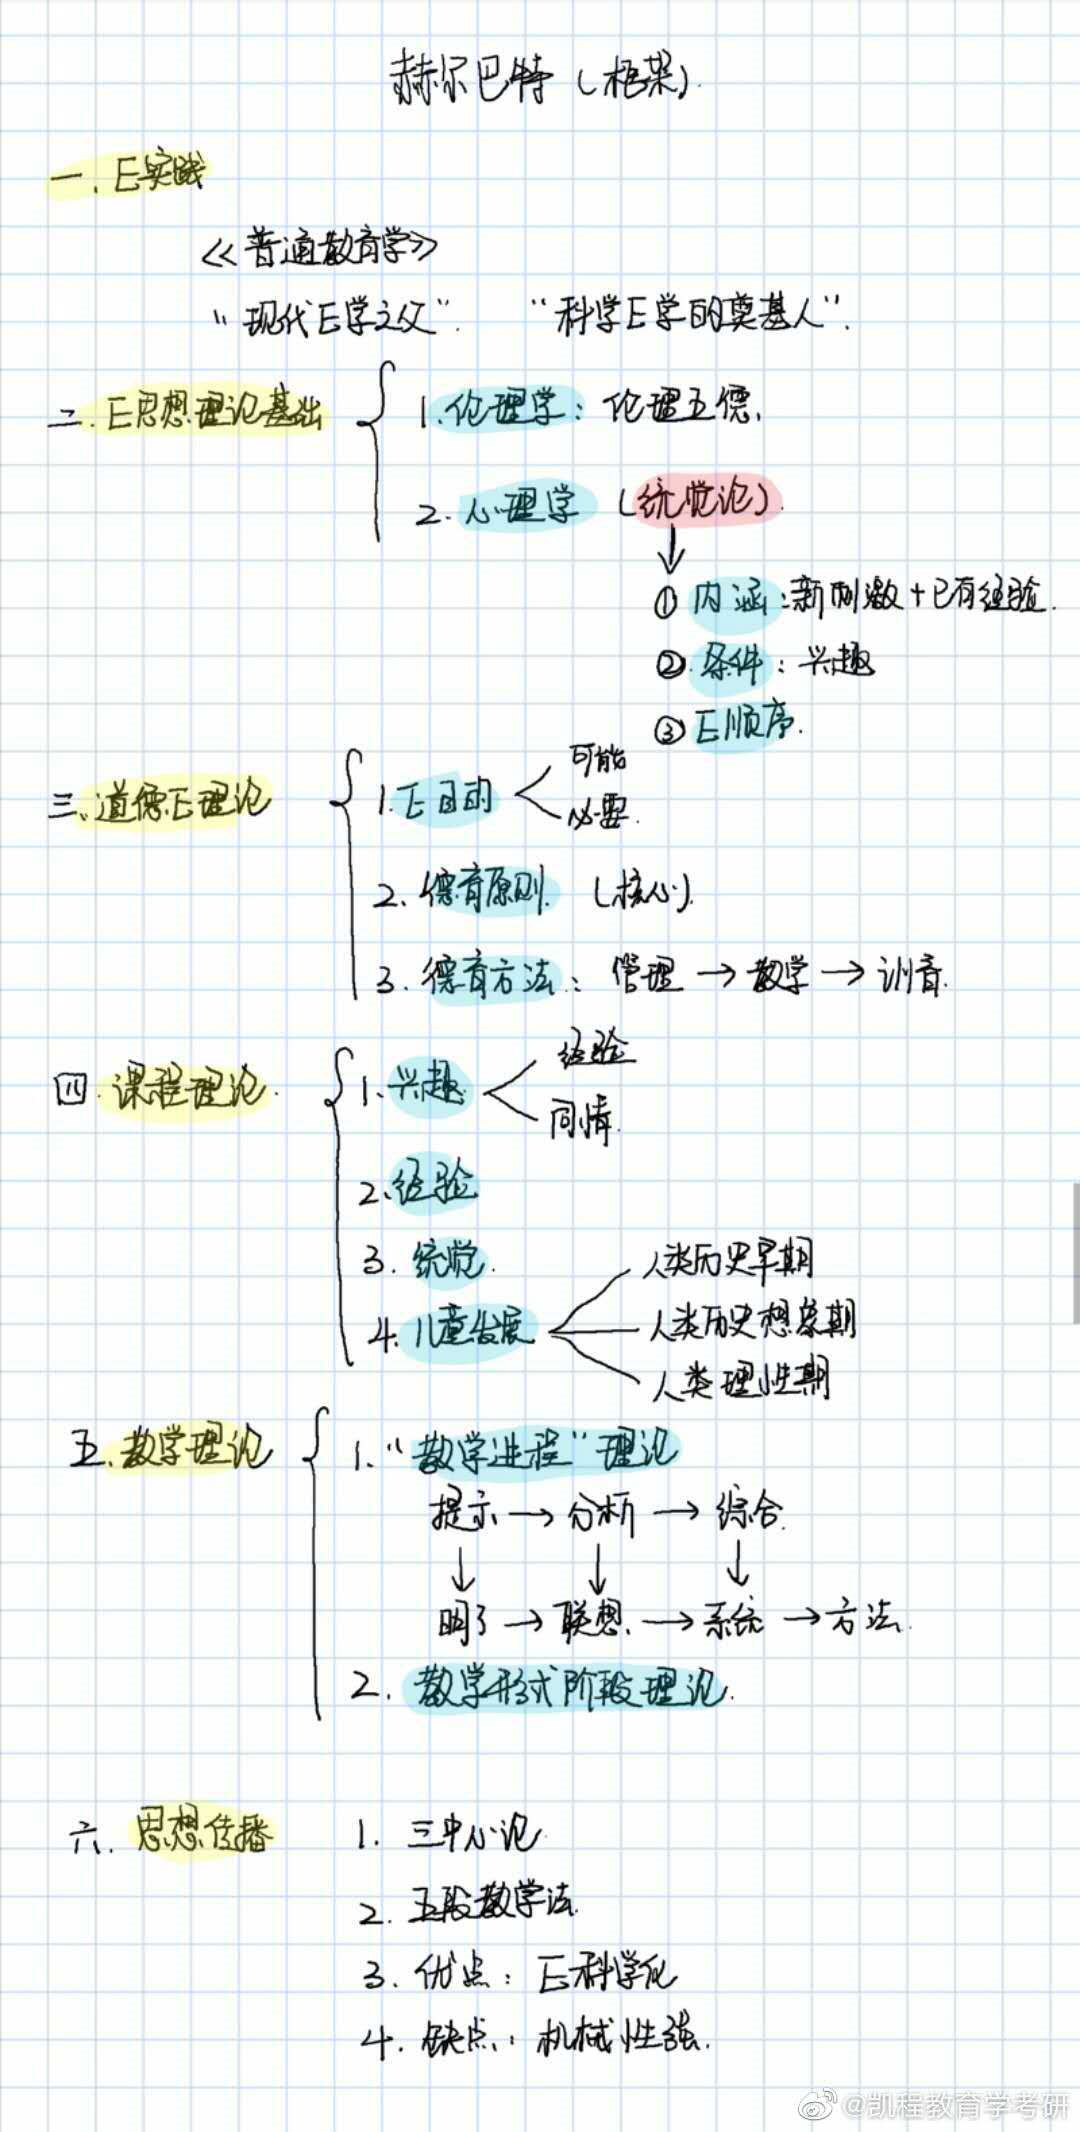 赫尔巴特(框架).
一.E实践
《普通教育学》
“现代E学之父”. “科学E学的奠基人”.
二.E思想理论基础
1.伦理学:伦理五德.
2.心理学(统觉论).
①内涵:新刺激+已有经验.
②条件:兴趣
③E顺序.
三、道德E理论
1.E目的
可能
必要.
2.德育原则.(核心).
3.德育方法:管理→教学→训育.
四.课程理论.
1.兴趣
经验
同情.
2.经验
3.统觉.
4.儿童发展
人类历史早期
人类历史想象期
人类理性期
五.教学理论
1.“教学进程”理论
提示→分析→综合.
↓ ↓ ↓
明了→联想.→系统→方法.
2.教学形式阶段理论.
六.思想传播
1.三中心论.
2.五段教学法.
3.优点:E科学化
4.缺点:机械性强.
@凯程教育学考研